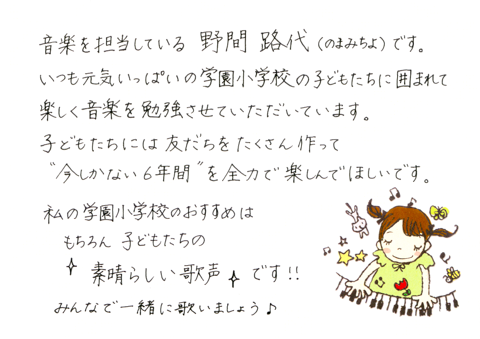 音楽を担当している 野間 路代(のまみちよ)です。
いつも元気いっぱいの学園小学校の子どもたちに囲まれて
楽しく音楽を勉強させていただいています。
子どもたちには友だちをたくさん作って
“今しかない6年間”を全力で楽しんでほしいです。
私の学園小学校のおすすめは
もちろん 子どもたちの
素晴らしい歌声 です!!
みんなで一緒に歌いましょう♪